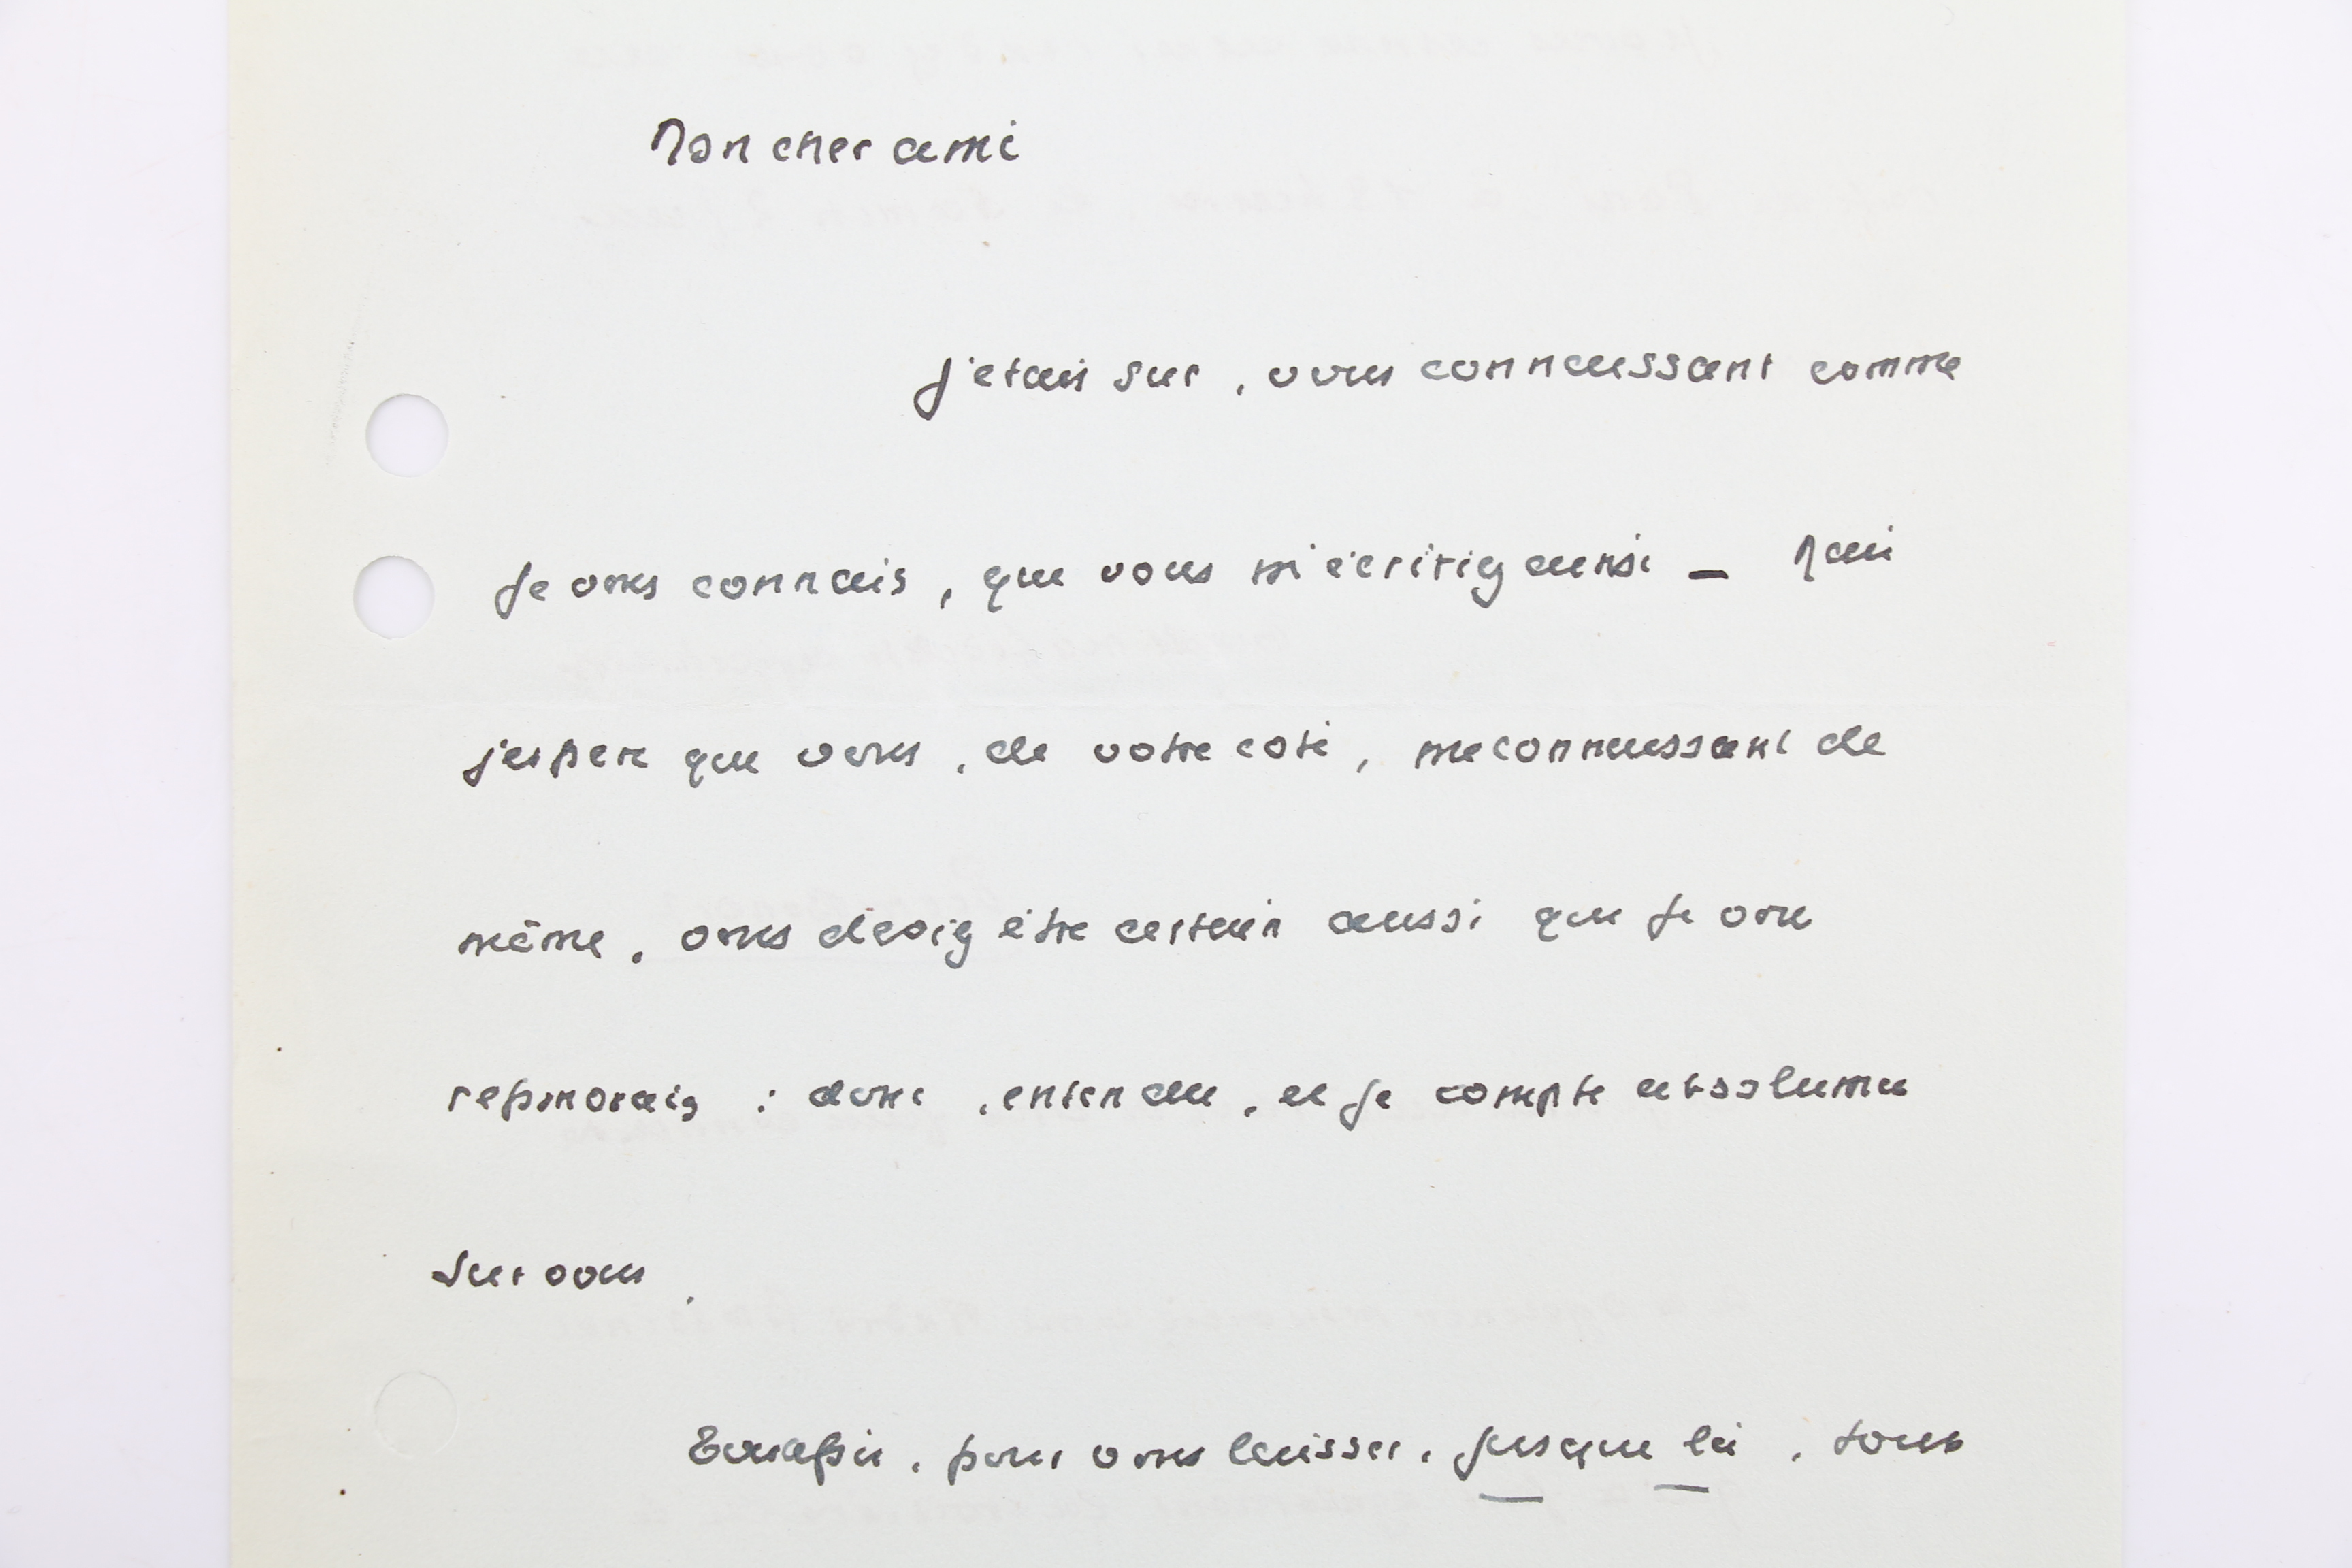 Mon cher ami
J'etais sur, vous connaissant comme
je vous connais, que vous m'écririez ainsi — Mai
j'espere que vous, de votre coté, me connaissant de
même, vous deviez être certain aussi que je vous
repondrais : donc, entendu, et je compte absolumen
sur vous.
pour vous laisser, jusque là, tous